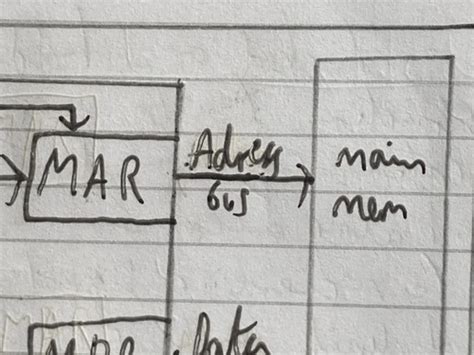 MAR
Adress
bus
main
mem
MDR
Data